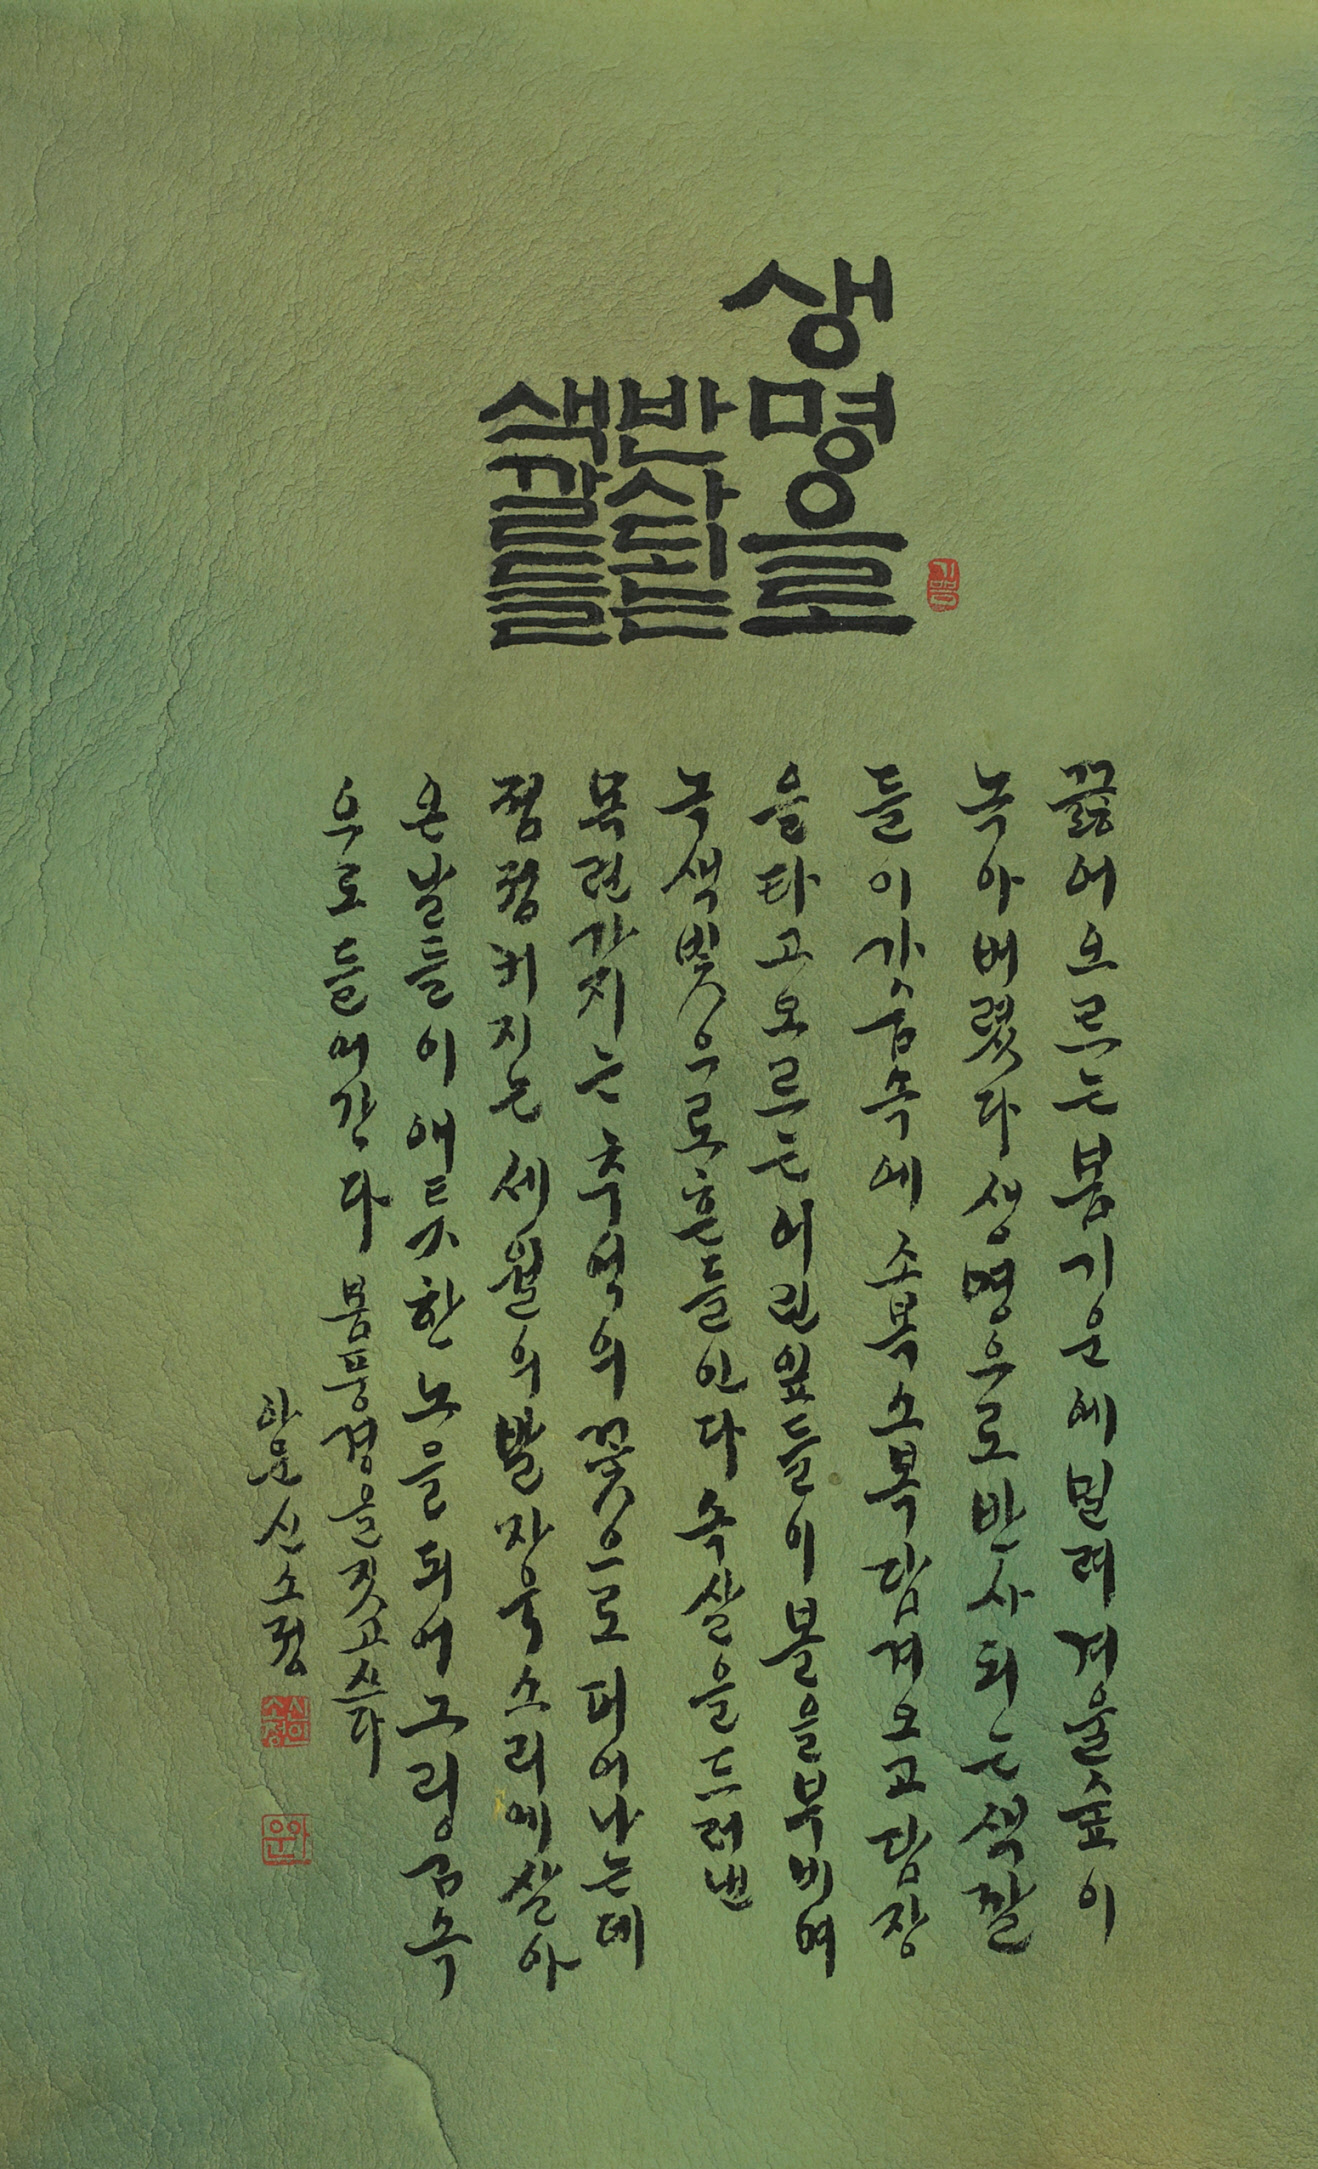 생명으로
반사되는
색깔들
기쁨
끓어오르는봄기운에밀려겨울숲이
녹아버렸다생명으로반사되는색깔
들이가슴속에소복소복담겨오고담장
을타고오르는어린잎들이볼을부비며
녹색빛으로흔들인다속살을드러낸
목련가지는추억의꽃으로피어나는데
점점커지는세월의발자욱소리에살아
온날들이애틋한노을되어그리움속
으로들어간다 봄풍경을짓고쓰다
아운신소정